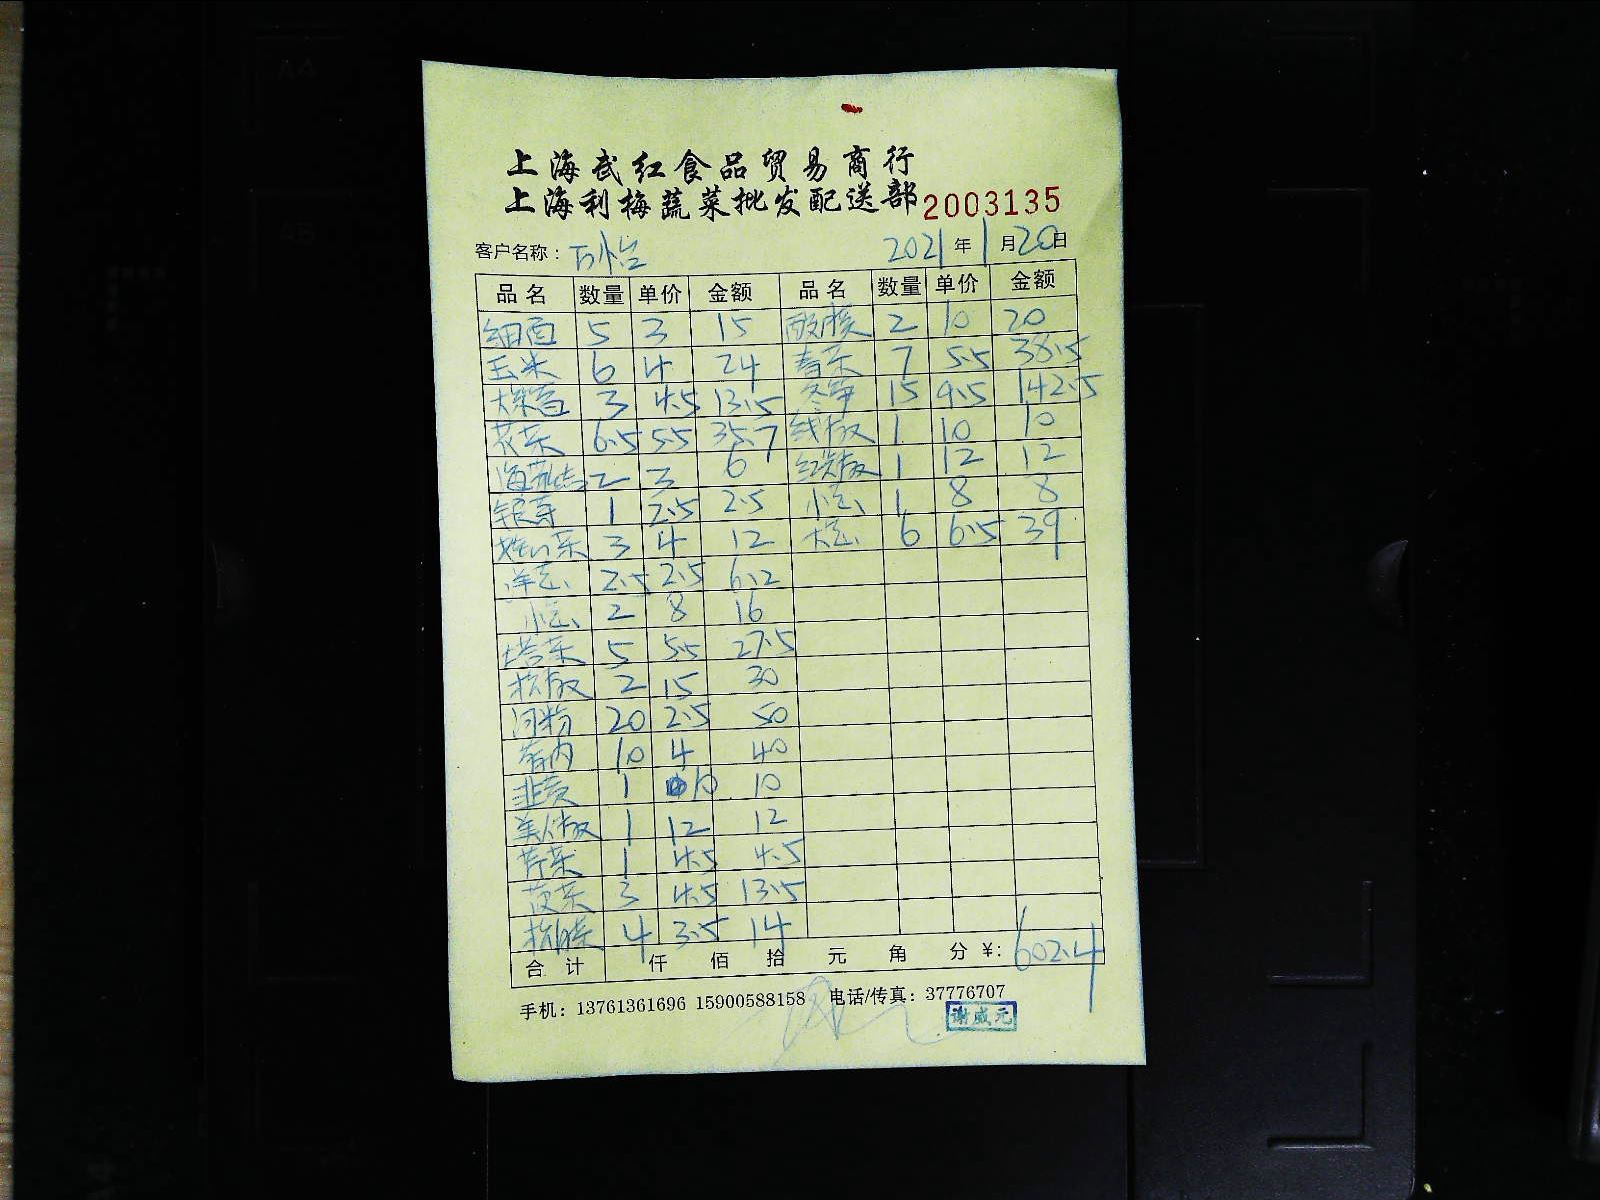 上海武红食品贸易商行
上海利梅蔬菜批发配送部 2003135
客户名称: 万怡 2021年1月20日
品名 数量 单价 金额 品名 数量 单价 金额
细面 5 3 15 2 10 20
玉米 6 4 24 春菜 7 5.5 38.5
3 4.5 13.5 冬笋 15 9.5 142.5
花菜 6.5 5.5 35.7 线椒 1 10 10
2 3 6 红尖椒 1 12 12
银芽 1 2.5 2.5 小葱 1 8 8
3 4 12 大葱 6 6.5 39
洋葱 2.5 2.5 6.2
小葱 2 8 16
塔菜 5 5.5 27.5
杭椒 2 15 30
河粉 20 2.5 50
10 4 40
韭黄 1 10 10
美人椒 1 12 12
芹菜 1 4.5 4.5
菠菜 3 4.5 13.5
4 3.5 14
合计 仟 佰 拾 元 角 分 ¥: 602.4
手机: 13761361696 15900588158 电话/传真: 37776707
谢威元